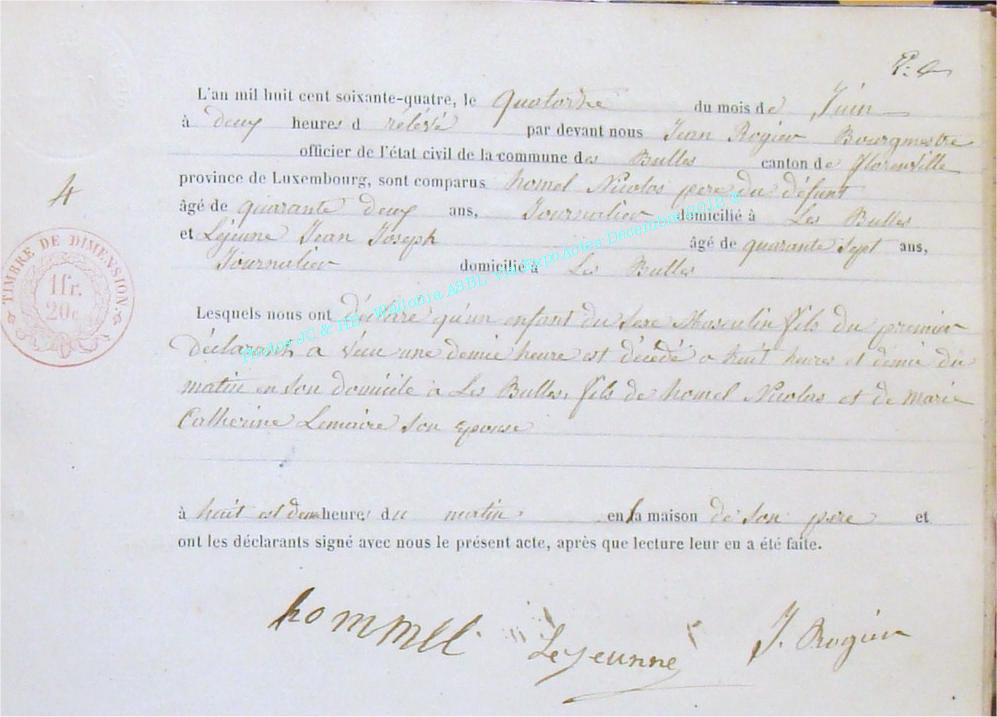 L'an mil huit cent soixante-quatre, le quatordze du mois de Juin
à deux heures d rélévé par devant nous Jean Rogier Bourgmestre
officier de l'état civil de la commune des Bulles canton de Florenville
province de Luxembourg, sont comparus homel Nicolas pere du défunt
âgé de quarante deux ans, Journalier domicilié à Les Bulles
et Léjeune Jean Joseph âgé de quarante sept ans,
Journalier domicilié à Les Bulles
4
TIMBRE DE DIMENSION
1fr.
20c
Lesquels nous ont déclaré qu'un enfant du sexe Masculin fils du premier
Déclarant, a vécu une demie heure est décédé a huit heures et démie du
matin en son domicile à Les Bulles, fils de homel Nicolas et de marie
Catherine Lemaire son epouse
à huit est dem heures du matin en la maison de son pere et
ont les déclarants signé avec nous le présent acte, après que lecture leur en a été faite.
hommel Lejeunne J. Rogier
JC & Wallonia ASBL via ExpoActes Décembre 2018